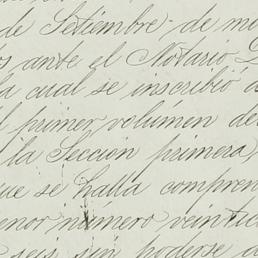 de Setiembre de mi
s ante el Notario D
la cual se inscribió a
l primer volúmen de
la Seccion primera,
ue se halla compren
enor número veintic
seis sin poderse